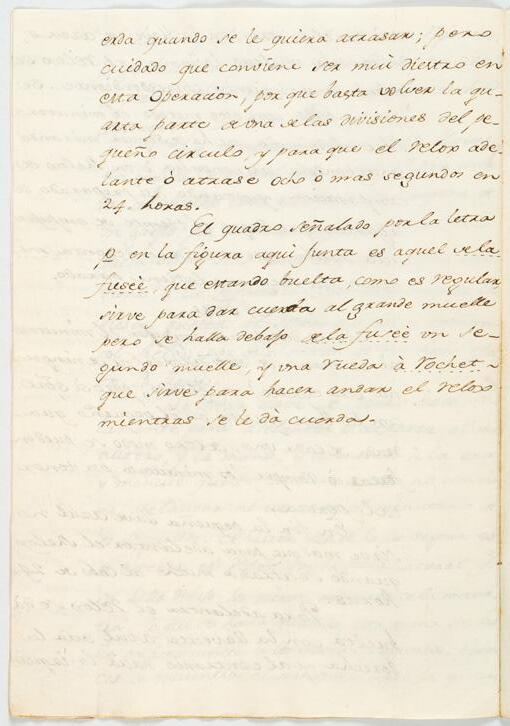 erda quando se le quiera atrasar; pero
cuidado que conviene ser mui diestro en
esta Operacion, por que basta volver la qu-
arta parte de una de las divisiones del pe-
queño circulo y para que el relox ade-
lante ò atrase ocho ò mas segundos en
24. horas.
El quadro señalado por la letra
p en la figura aqui junta es aquel de la
fuseè, que estando buelta, como es regular
sirve para dar cuerda al grande muelle
pero se halla debajo de la fuseè un se-
gundo muelle, y una rueda à rochet-
que sirve para hacer andar el relox
mientras se le dà cuerda.